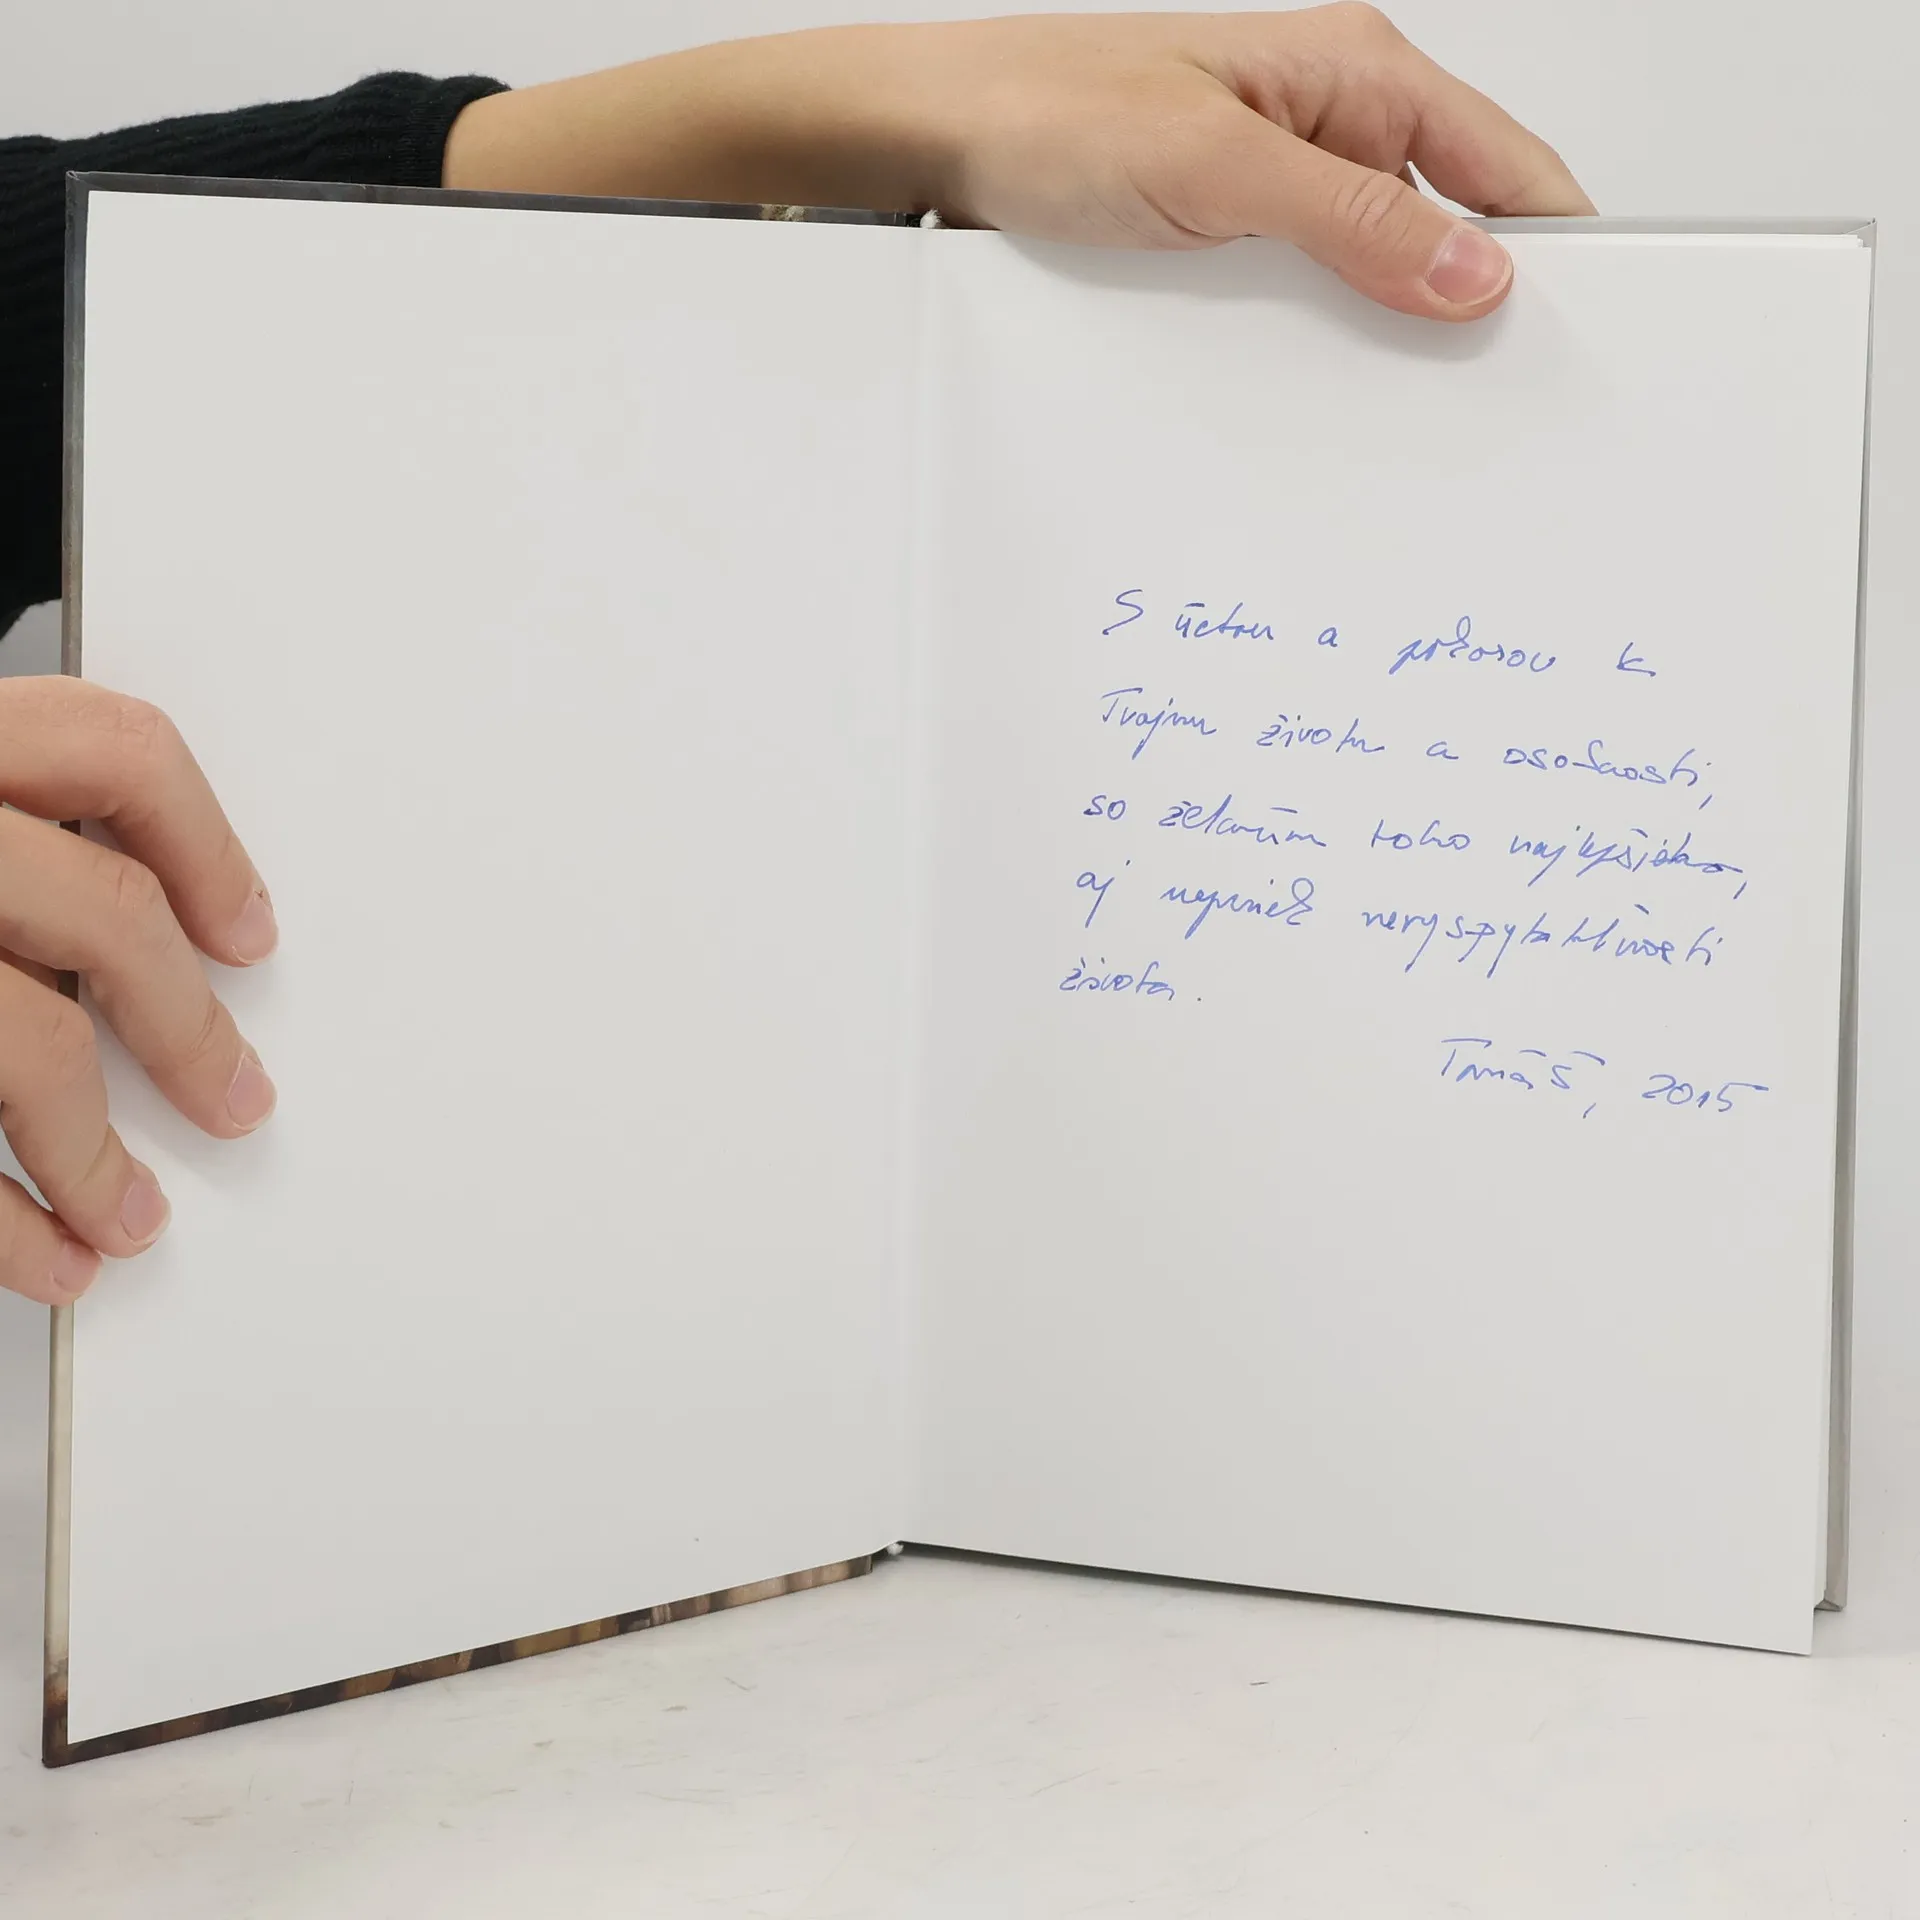 S úctou a pokorou k
Tvojmu životu a osobnosti,
so želaním toho najlepšieho,
aj napriek nevyspytateľnosti
života.
Tomáš, 2015